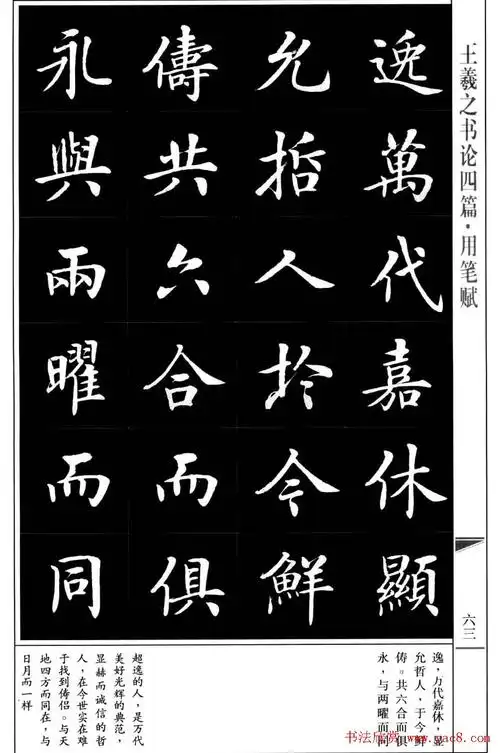 王羲之书论四篇·用笔赋
六三
逸萬代嘉休顯
允哲人於今鮮
儔共六合而俱
永與兩曜而同
逸,万代嘉休,显
允哲人,于今鲜
俦。共六合而俱
永,与两曜而同
超逸的人,是万代
美好光辉的典范,
显赫而诚信的哲
人,在今世实在难
于找到俦侣。与天
地四方而同在,与
日月而一样
书法欣赏